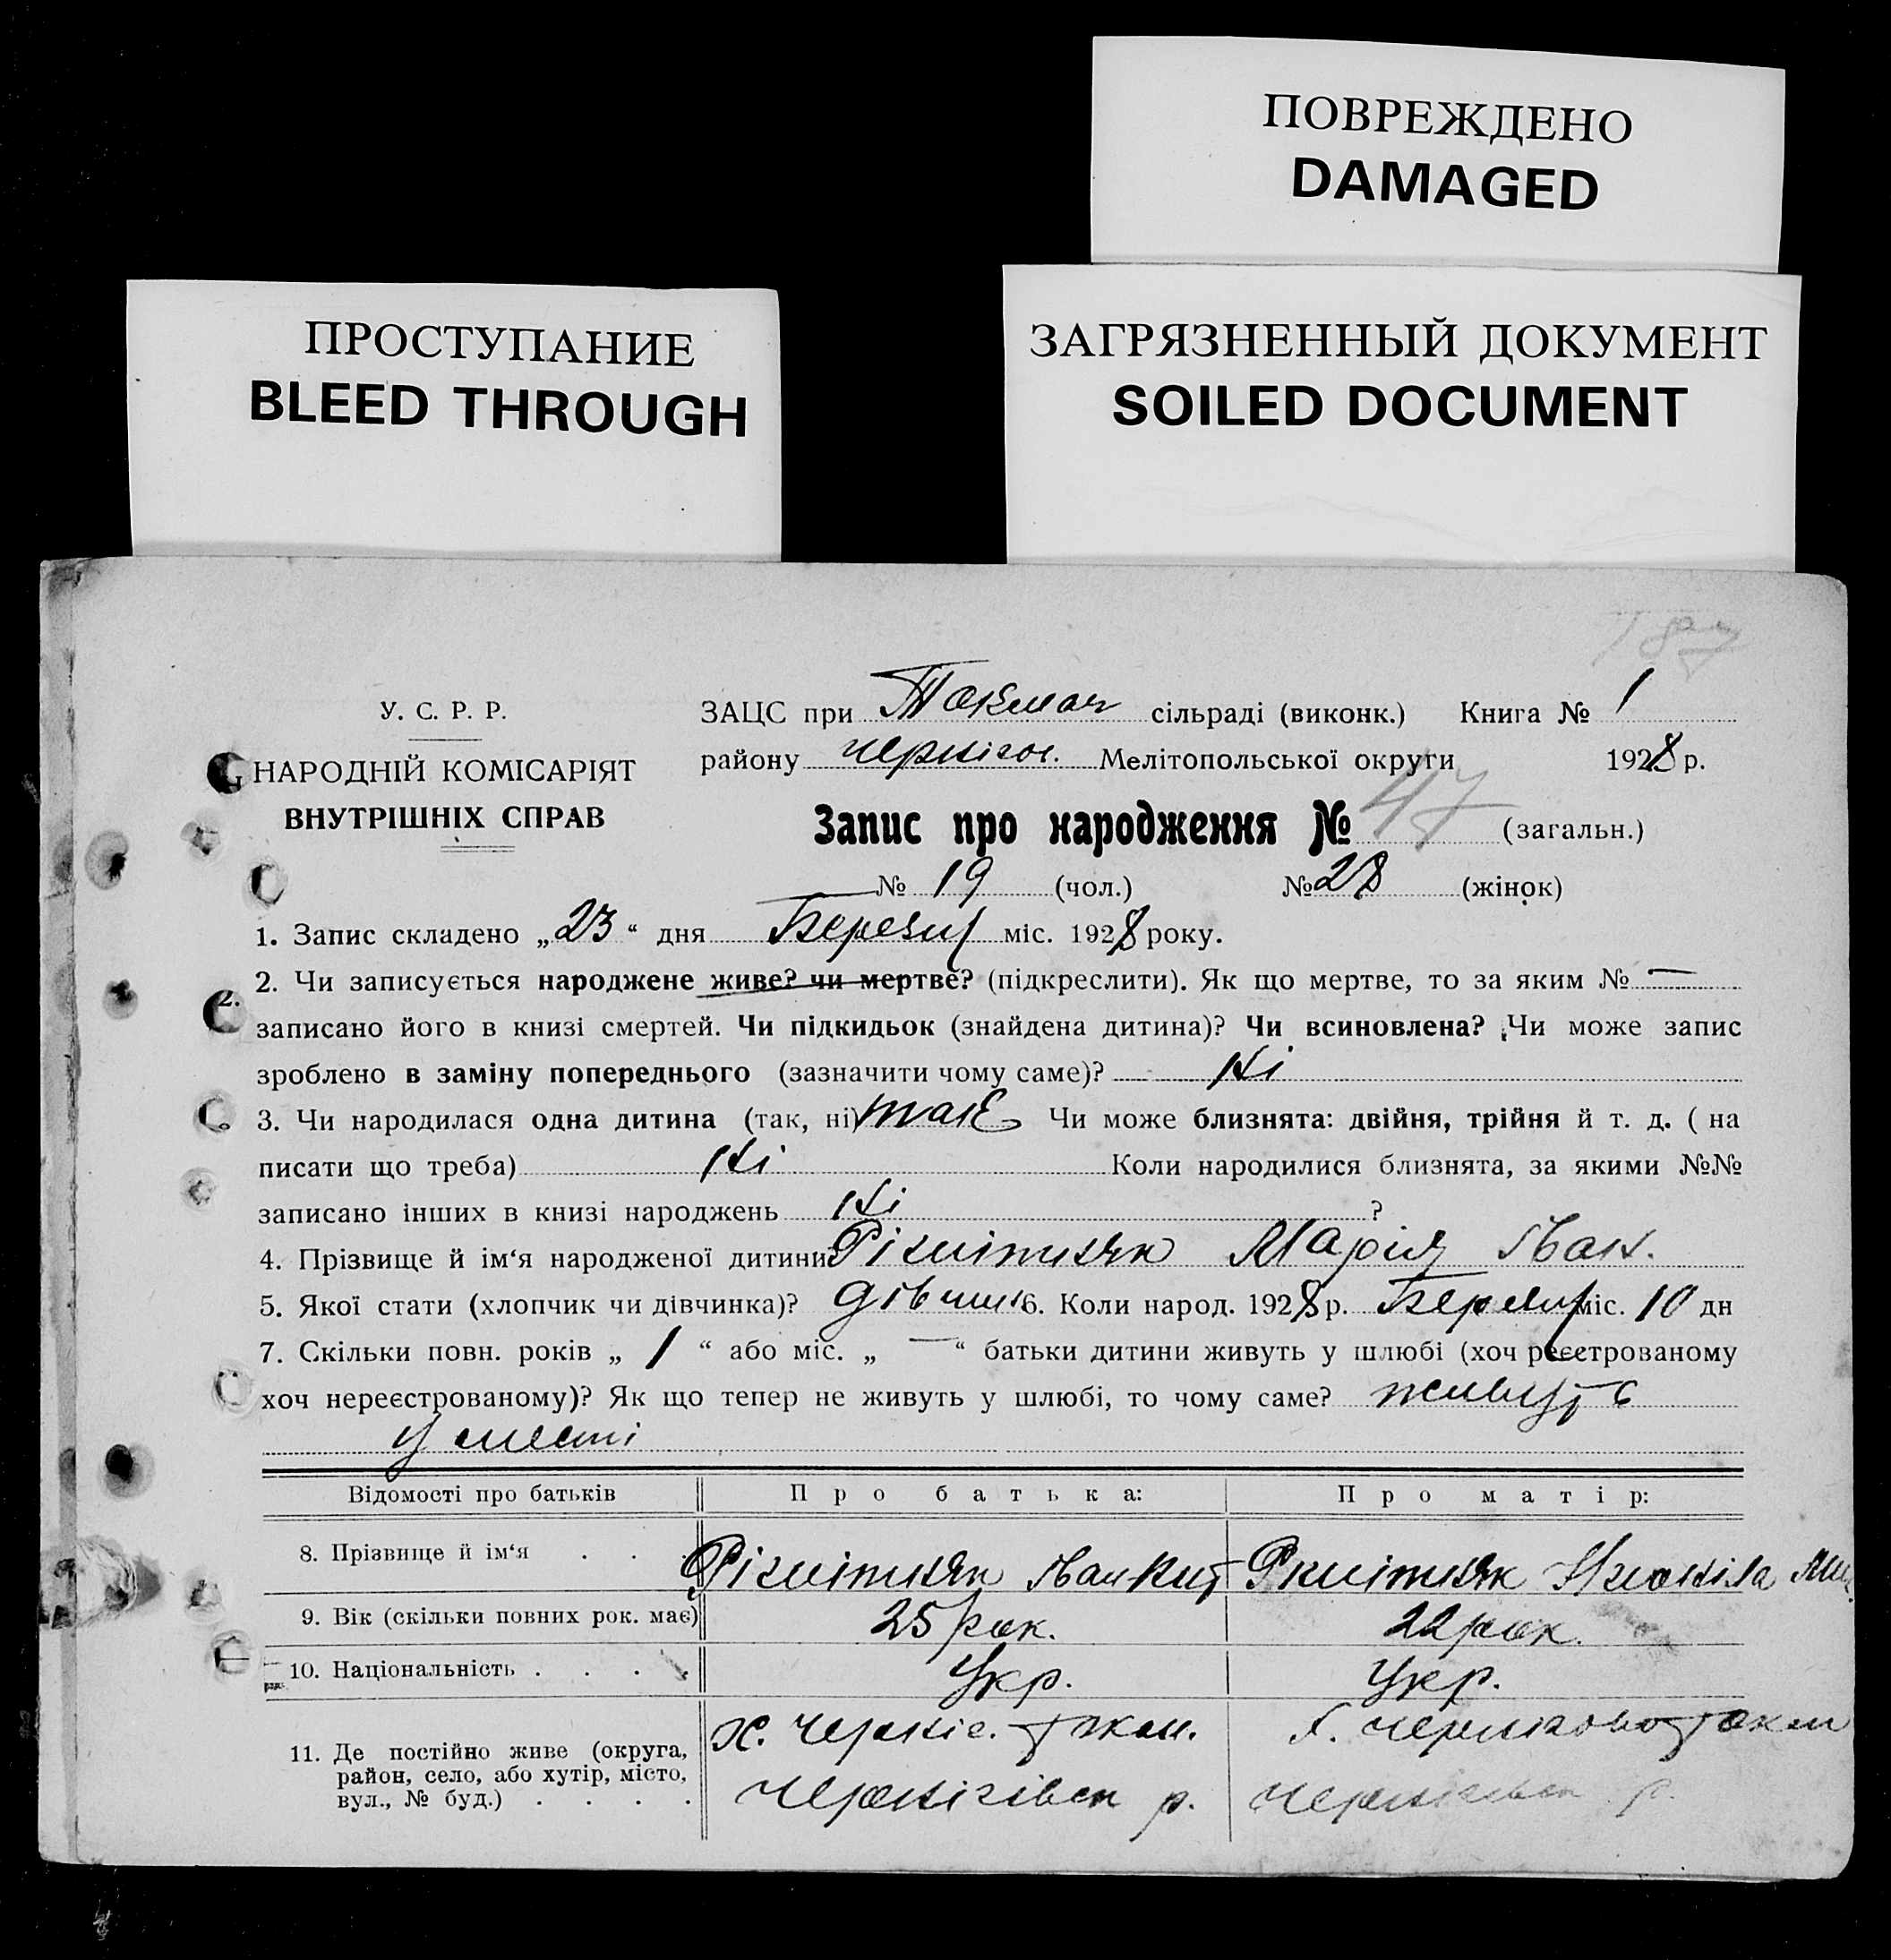 ПОВРЕЖДЕНО
DAMAGED
ПРОСТУПАНИЕ
BLEED THROUGH
ЗАГРЯЗНЕННЫЙ ДОКУМЕНТ
SOILED DOCUMENT
187
У. С. Р. Р.
НАРОДНІЙ КОМІСАРІЯТ
ВНУТРІШНІХ СПРАВ
ЗАЦС при Токмач сільраді (виконк.) Книга № 1
району Чернігов. Мелітопольської округи 1928 р.
Запис про народження № 47 (загальн.)
№ 19 (чол.) № 28 (жінок)
1. Запис складено „23“ дня Березня міс. 1928 року.
2. Чи записується народжене живе? чи мертве? (підкреслити). Як що мертве, то за яким № —
записано його в книзі смертей. Чи підкидьок (знайдена дитина)? Чи всиновлена? Чи може запис
зроблено в заміну попереднього (зазначити чому саме)? Ні
3. Чи народилася одна дитина (так, ні) так Чи може близнята: двійня, трійня й т. д. ( на
писати що треба) Ні Коли народилися близнята, за якими №№
записано інших в книзі народжень Ні ?
4. Прізвище й ім‘я народженої дитини Марія Іван.
5. Якої стати (хлопчик чи дівчинка)? Дівчин 6. Коли народ. 1928 р. Березня міс. 10 дн
7. Скільки повн. років „ 1 “ або міс. „ — “ батьки дитини живуть у шлюбі (хоч реєстрованому
хоч нереєстрованому)? Як що тепер не живуть у шлюбі, то чому саме? живуть
у месті
Відомості про батьків Про батька: Про матір:
8. Прізвище й ім‘я . . . Іван
9. Вік (скільки повних рок. має) 25 рок. 22 рок.
10. Національність . . . . Укр. Укр.
11. Де постійно живе (округа,
район, село, або хутір, місто,
вул., № буд.) . . . .
Чернігівск р. Чернігівск р.